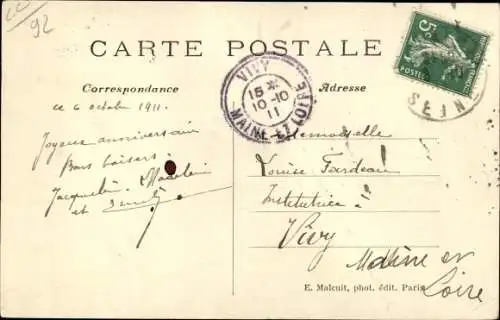 92
CARTE POSTALE
Correspondance
Adresse
ce 6 octobre 1911.
Joyeux anniversaire
Bons baisers.
Jacqueline
et
VIVY
15 *
10 -10
11
MAINE-ET-LOIRE
5c
POSTES
SEINE
Mademoiselle
Louise Tardeau
Institutrice à
Vivy
Maine et
Loire
E. Malcuit, phot. édit. Paris